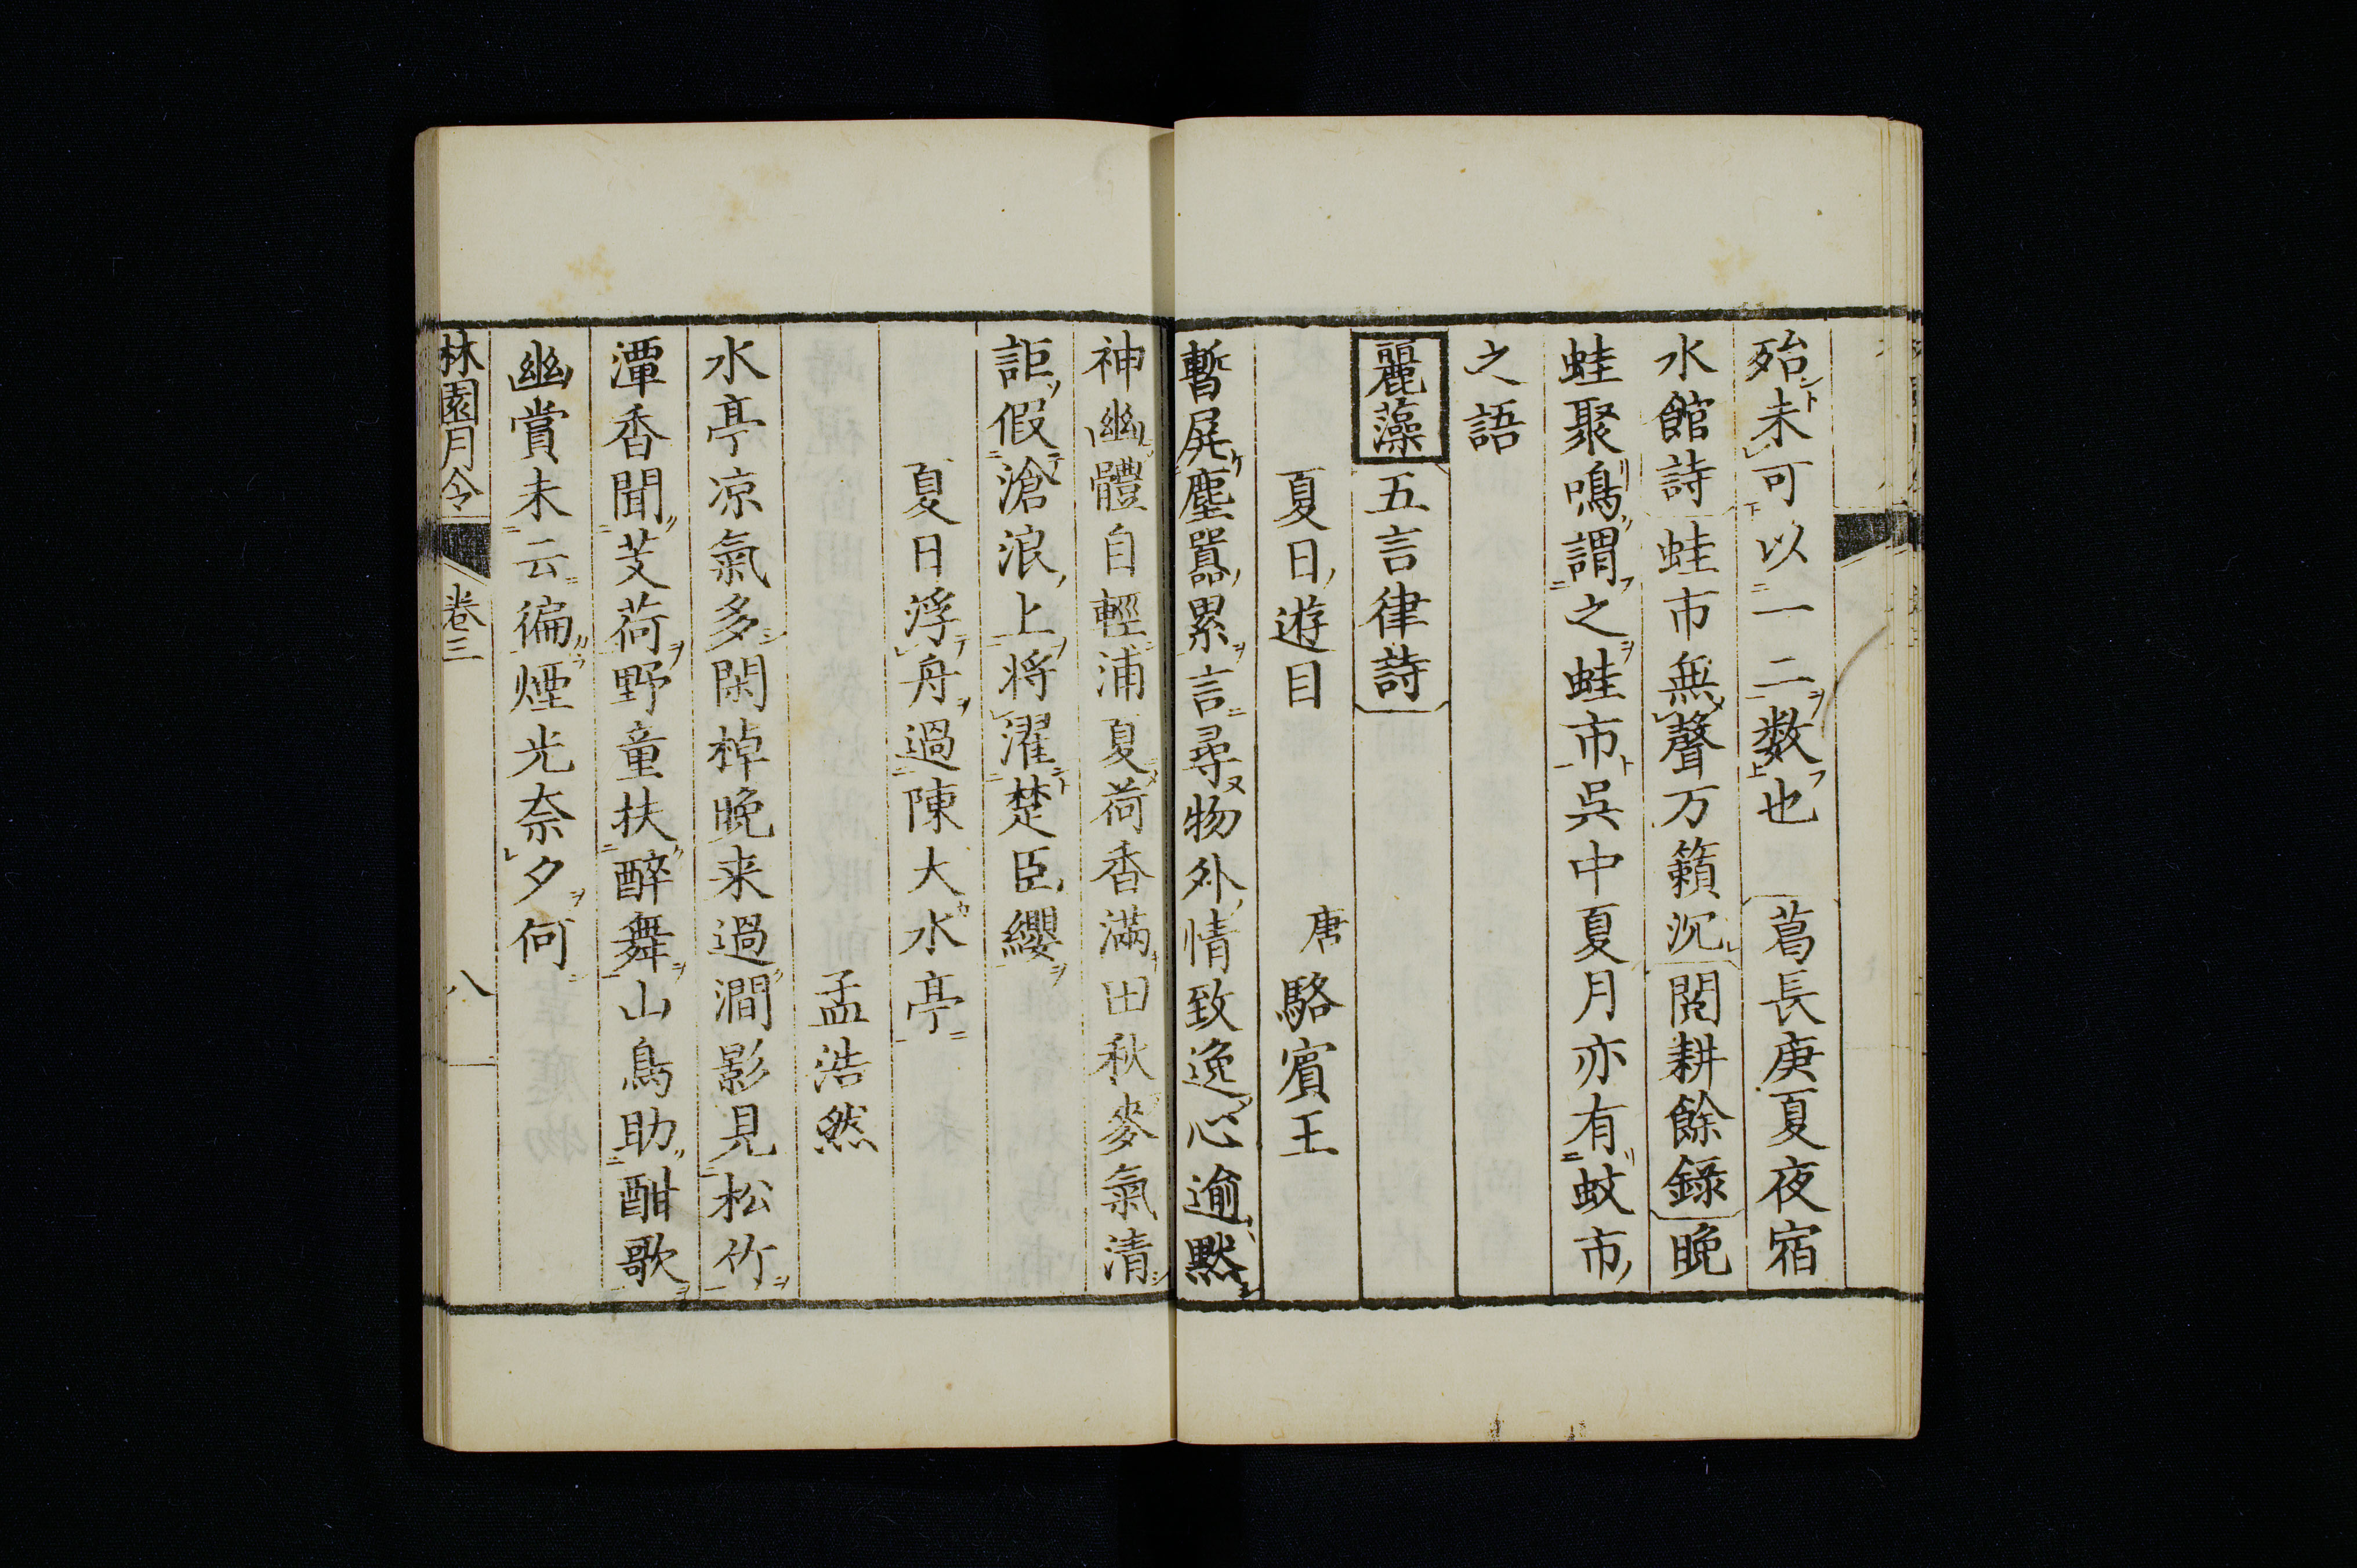 殆未可以一二数也　葛長庚夏夜宿
水館詩蛙市無聲万籟沉閱耕餘錄晚
蛙聚鳴謂之蛙市呉中夏月亦有蚊市
之語
麗藻五言律詩
夏日遊目　唐駱賓王
暫屏塵囂累言尋物外情致逸心逾默
神幽體自輕浦夏荷香滿田秋麥氣清
詎假滄浪上将濯楚臣纓
夏日浮舟過陳大水亭
孟浩然
水亭凉氣多閑棹晚来過澗影見松竹
潭香聞芰荷野童扶醉舞山鳥助酣歌
幽賞未云徧煙光奈夕何
林園月令　卷三　八